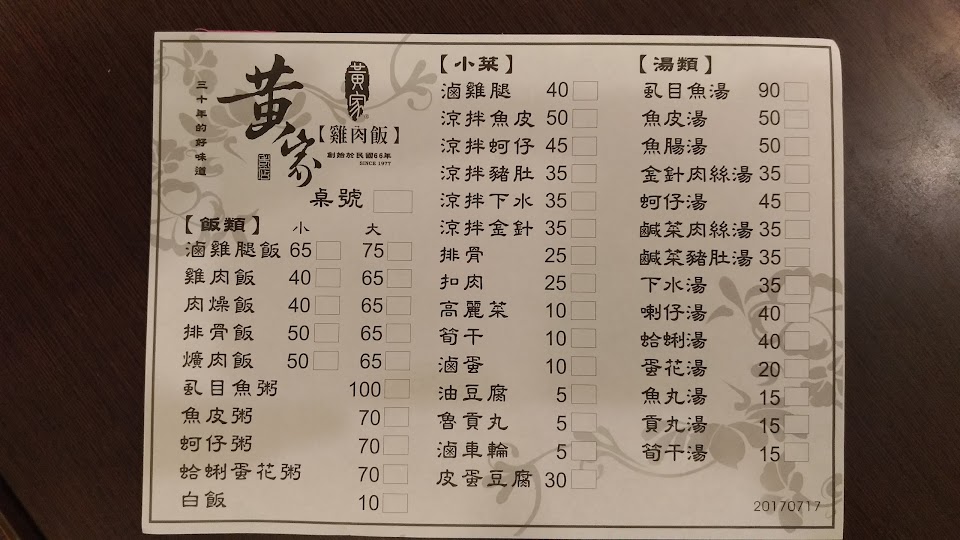 三十年的好味道
黃家
黃家
【雞肉飯】
創始於民國66年
SINCE 1977
桌號
【飯類】 小 大
滷雞腿飯 65 75
雞肉飯 40 65
肉燥飯 40 65
排骨飯 50 65
爌肉飯 50 65
虱目魚粥 100
魚皮粥 70
蚵仔粥 70
蛤蜊蛋花粥 70
白飯 10
【小菜】
滷雞腿 40
涼拌魚皮 50
涼拌蚵仔 45
涼拌豬肚 35
涼拌下水 35
涼拌金針 35
排骨 25
扣肉 25
高麗菜 10
筍干 10
滷蛋 10
油豆腐 5
魯貢丸 5
滷車輪 5
皮蛋豆腐 30
【湯類】
虱目魚湯 90
魚皮湯 50
魚腸湯 50
金針肉絲湯 35
蚵仔湯 45
鹹菜肉絲湯 35
鹹菜豬肚湯 35
下水湯 35
喇仔湯 40
蛤蜊湯 40
蛋花湯 20
魚丸湯 15
貢丸湯 15
筍干湯 15
20170717